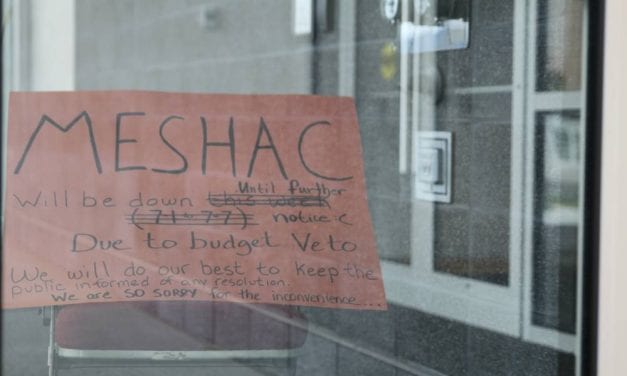 MESHAC
Until further
Will be down this week
(7/1-7-7) notice :(
Due to budget Veto
We will do our best to keep the
public informed of any resolution.
We are SO SORRY for the inconvenience....